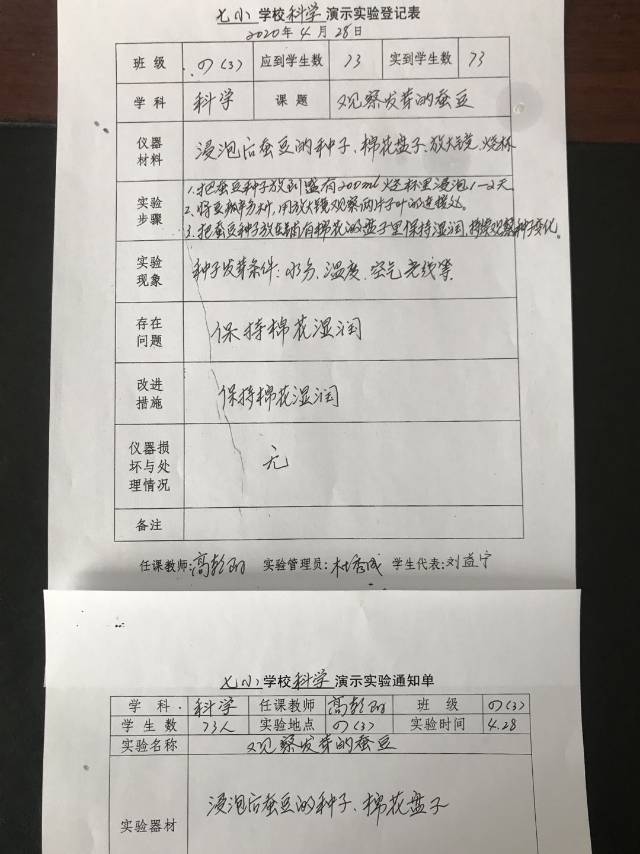 七小学校科学演示实验登记表
2020年4月28日
班级 四(3) 应到学生数 73 实到学生数 73
学科 科学 课题 观察发芽的蚕豆
仪器材料 浸泡后蚕豆的种子、棉花盘子、放大镜、烧杯
实验步骤 1.把蚕豆种子放到盛有200ml烧杯里浸泡1-2天
2.将豆瓣掰开,用放大镜观察两片子叶的连接处。
3.把蚕豆种子放在铺有棉花的盘子里保持湿润,持续观察种子变化。
实验现象 种子发芽条件:水分、温度、空气光线等
存在问题 保持棉花湿润
改进措施 保持棉花湿润
仪器损坏与处理情况 无
备注
任课教师: 实验管理员: 学生代表:刘益宁
七小学校科学演示实验通知单
学科 科学 任课教师 班级 四(3)
学生数 73人 实验地点 四(3) 实验时间 4.28
实验名称 观察发芽的蚕豆
实验器材 浸泡后蚕豆的种子、棉花盘子